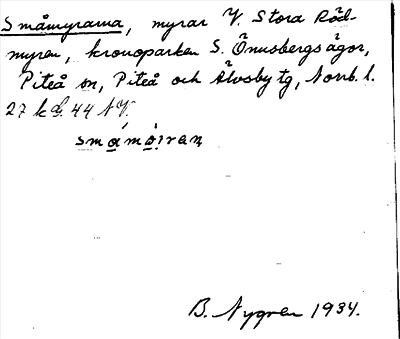 Småmyrarna, myrar V. Stora Röd-
myren, kronoparken S. Önusbergsägor,
Piteå sn, Piteå och Älvsby tg, Norrb. l.
27 kd. 44 NV.
småmo̤i̯raṇ
B. Nygren 1934.